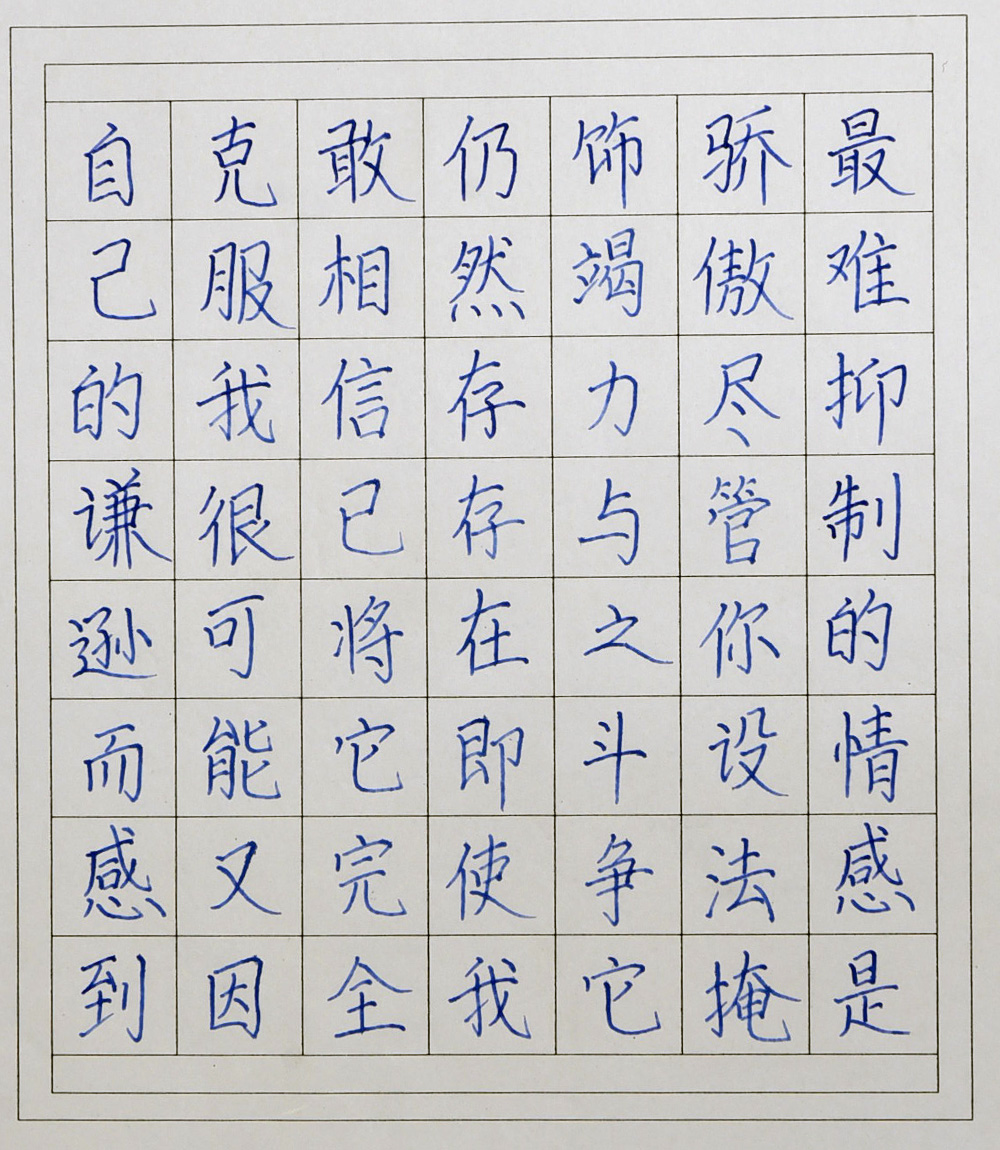 最难抑制的情感是
骄傲尽管你设法掩
饰竭力与之斗争它
仍然存存在即使我
敢相信已将它完全
克服我很可能又因
自己的谦逊而感到